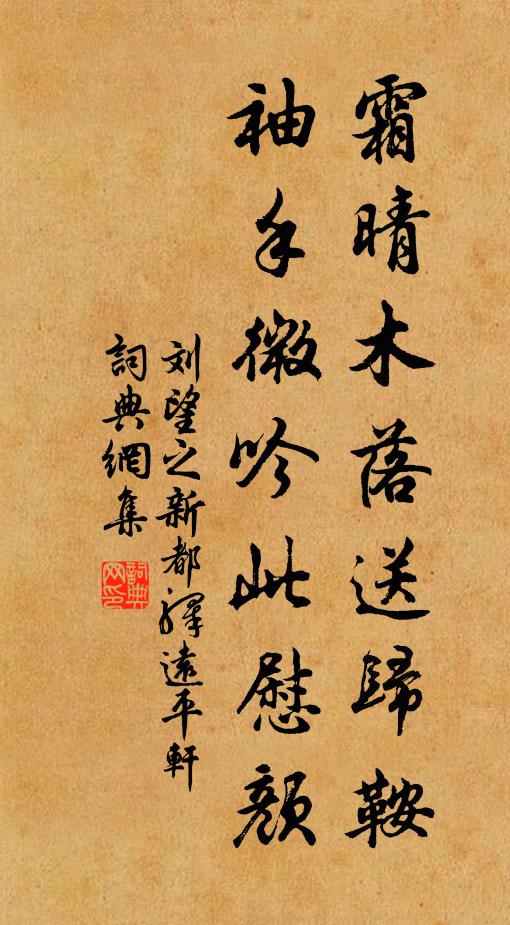 霜晴木落送歸鞍
袖手微吟此慰顏
刘望之新都驛遠平軒
詞典網集
詞典網印